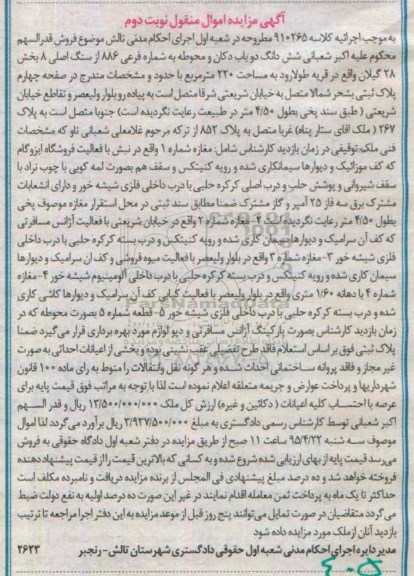 آگهی مزایده اموال منقول نوبت دوم
به موجب اجرائیه کلاسه ۹۱۰۲۶۵ مطروحه در شعبه اول اجرای احکام مدنی تالش موضوع فروش قدرالسهم
محکوم علیه اکبر شعبانی شش دانگ دو باب دکان و محوطه به شماره فرعی ۸۸۶ از سنگ اصلی ۸ بخش
۲۸ گیلان واقع در قریه طولارود به مساحت ۲۲۰ مترمربع با حدود و مشخصات مندرج در صفحه چهارم
پلاک ثبتی بشحر شمالا متصل به خیابان شریعتی شرقا متصل است به پیاده رو بلوار ولیعصر و تقاطع خیابان
شریعتی ( طبق سند پخی بطول ۴/۵۰ متر در طبیعت رعایت نگردیده است) جنوبا متصل است به پلاک
۲۶۷ ( ملک آقای ستار پناه) غربا متصل به پلاک ۸۵۲ از ترکه مرحوم غلامعلی شعبانی ناو که مشخصات
فنی ملک توقیفی در زمان بازدید کارشناس شامل: مغازه شماره ۱ واقع در نبش با فعالیت فروشگاه ایزوگام
که کف موزائیک و دیوارها سیمانکاری شده و رویه کنیتکس و سقف هم بصورت لمه کوبی با چوب نراد با
سقف شیروانی و پوشش حلب و درب اصلی کرکره حلبی با درب داخلی فلزی شیشه خور و دارای انشعابات
مشترک برق سه فاز ۲۵ آمپر و گاز مشترک ضمنا مطابق سند ثبتی در محل استقرار مغازه موصوف پخی
بطول ۴/۵۰ متر رعایت نگردیده است ۲- مغازه شماره ۲ واقع در خیابان شریعتی با فعالیت آژانس مسافرتی
که کف آن سرامیک و دیوارها سیمان کاری شده و رویه کنیتکس و درب بسته کرکره حلبی با درب داخلی
فلزی شیشه خور ۳- مغازه شماره ۳ واقع در بلوار ولیعصر با فعالیت میوه فروشی و کف آن سرامیک و دیوارها
سیمان کاری شده و رویه کنیتکس و درب بسته کرکره حلبی با درب داخلی آلومینیوم شیشه خور ۴- مغازه
شماره ۴ با دهانه ۱/۶۰ متری واقع در بلوار ولیعصر با فعالیت کبابی کف آن سرامیک و دیوارها کاشی کاری
شده و درب بسته کرکره حلبی با درب داخلی فلزی شیشه خور ۵- قطعه شماره ۵ بصورت محوطه که در
زمان بازدید کارشناس بصورت پارکینگ آژانس مسافرتی و دپو لوازم مورد بهره برداری قرار می گیرد ضمنا
پلاک ثبتی فوق بر اساس استعلام فاقد طرح تفصیلی عقب نشینی بوده و بخشی از اعیانات احداثی به صورت
غیر مجاز و فاقد پروانه ساختمانی احداث شده و هر گونه نقل وانتقالات را منوط به رای ماده ۱۰۰ قانون
شهرداریها و پرداخت عوارض و جریمه متعلقه اعلام نموده است لذا با توجه به مراتب فوق قیمت پایه برای
عرصه با احتساب کلیه اعیانات ( دکانین و غیره) ارزش کل ملک ۱۳/۵۰۰/۰۰۰/۰۰۰ ریال و قدر السهم
اکبر شعبانی توسط کارشناس رسمی دادگستری به مبلغ ۳/۹۳۷/۵۰۰/۰۰۰ ریال برآورد می گردد لذا اموال
موصوف سه شنبه ۹۵/۴/۲۲ ساعت ۱۱ صبح از طریق مزایده در دفتر شعبه اول دادگاه حقوقی به فروش
می رسد قیمت پایه از بهای ارزیابی شده شروع شده و به کسانی که بالاترین قیمت را از قیمت پیشنهاد دهنده
فروخته خواهد شد و ده درصد مبلغ پیشنهادی فی المجلس از برنده مزایده دریافت و نامبرده مکلف است
حداکثر تا یک ماه به پرداخت ثمن معامله اقدام نمایند در غیر این صورت ده درصد اولیه به نفع دولت ضبط
می گردد متقاضیان در صورت تمایل می توانند پنج روز قبل از موعد مزایده به این دفتر اجرا مراجعه تا ترتیب
بازدید آنان از ملک مورد مزایده داده شود
مدیر دایره اجرای احکام مدنی شعبه اول حقوقی دادگستری شهرستان تالش - رنجبر ۲۶۲۳